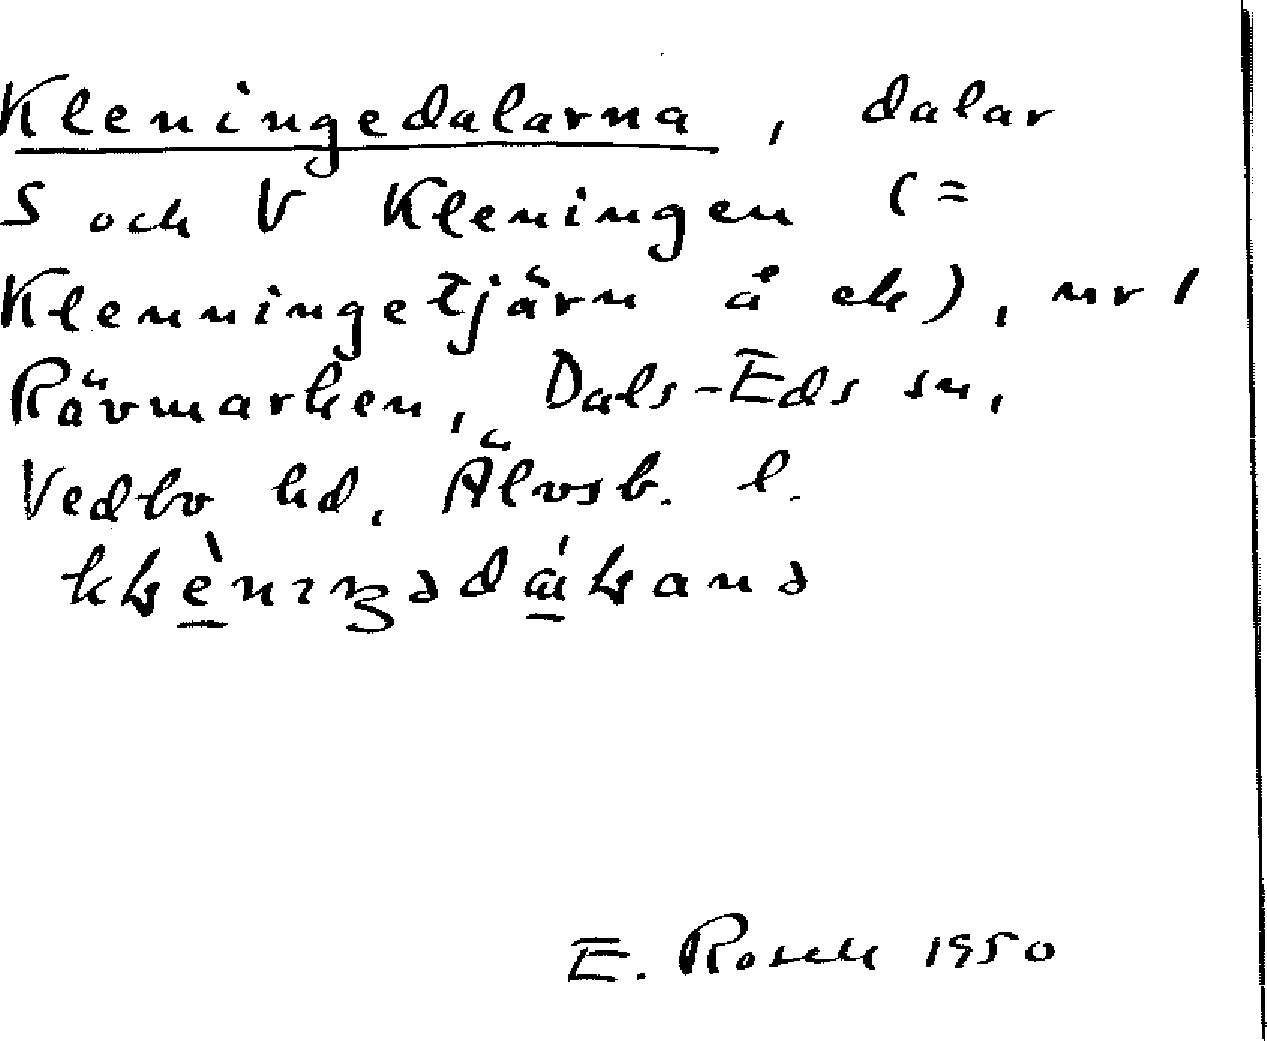 Kleningedalarna, dalar
S och V Kleningen (=
Klenningetjärn å ek), nr 1
Rävmarken, Dals-Eds sn,
Vedbo hd, Älvsb. l.
E. Rosell 1950